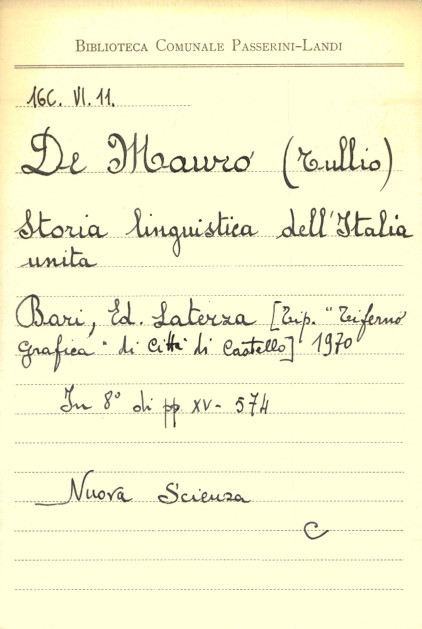 BIBLIOTECA COMUNALE PASSERINI-LANDI
16C. VI. 11.
De Mauro (Tullio)
Storia linguistica dell'Italia
unita
Bari, Ed. Laterza [Tip. "Tiferno
Grafica" di Città di Castello] 1970
In 8° di pp XV - 574
Nuova Scienza
C